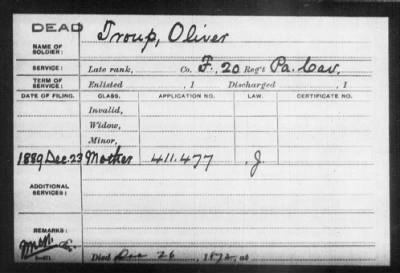 DEAD
NAME OF SOLDIER: Troup, Oliver
SERVICE: Late rank, Co. F, 20 Reg't Pa. Cav.
TERM OF SERVICE: Enlisted , 1 Discharged , 1
DATE OF FILING. CLASS. APPLICATION NO. LAW. CERTIFICATE NO.
Invalid,
Widow,
Minor,
1889 Dec. 23 Mother 411.477 J.
ADDITIONAL SERVICES:
REMARKS:
Died Dec 26, 1872, at